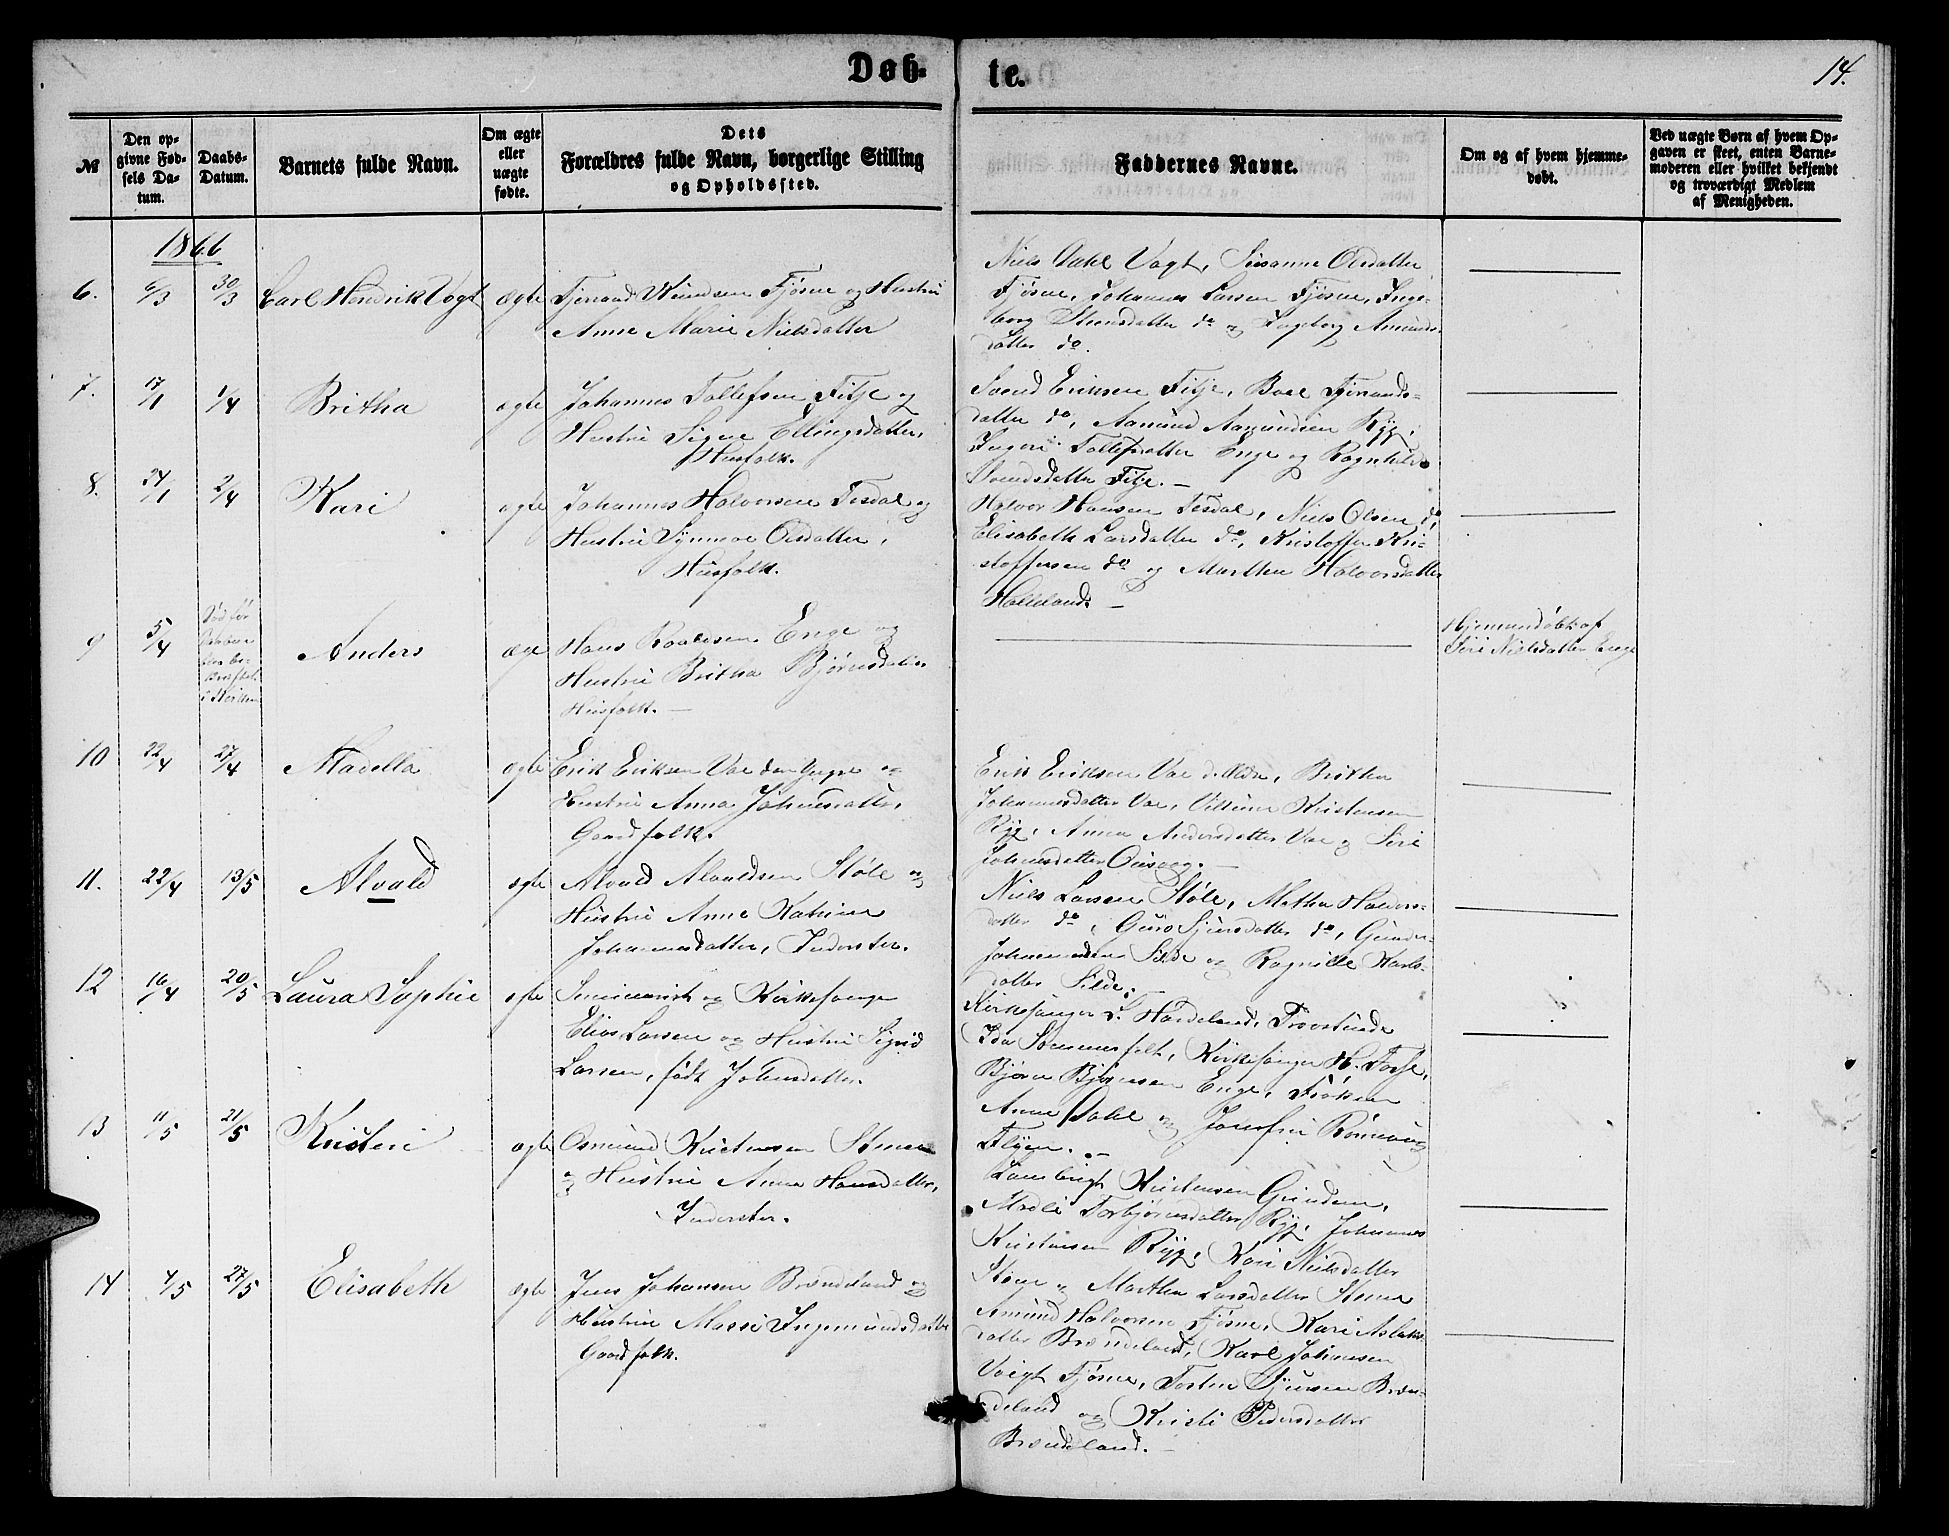 Døb-
te.
14.
№
Den op-
givne Fød-
sels Da-
tum.
Daabs-
Datum.
Barnets fulde Navn.
Om ægte
eller
uægte
fødte.
Dets
Forældres fulde Navn, borgerlige Stilling
og Opholdssted.
Faddernes Navne.
Om og af hvem hjemme-
døbt.
Ved uægte Børn af hvem Op-
gaven er skeet, enten Barne-
moderen eller hvilket bekjendt
og troværdigt Medlem
af Menigheden.
1866
6. 6/3 30/3 Carl Hendrik Vogt ægte Fjøsne og Hustru
Anne Marie Nielsdatter
Niels Vogt, Susanne Olsdatter
Fjøsne, Johannes Larsen Fjøsne, Inge-
borg Steensdatter do og Ingeborg Amunds-
datter do.
7. 17/1 1/4 Britha ægte Johannes Tollefsen Fitje og
Hustru Signe Ellingsdatter,
Husfolk.
Svend Eriksen Fitje, Boel
datter do, Aamund Aamundsen Ryg,
Ingeri Tollefsdatter Enge og Ragnhild
Svendsdatter Fitje.
8. 24/1 2/4 Kari ægte Johannes Halvorsen Tesdal og
Hustru Synneve Olsdatter,
Husfolk.
Halvor Hansen Tesdal, Niels Olsen do,
Elisabeth Larsdatter do, Kristoffer Kri-
stoffersen do og Martha Halvorsdatter
Halleland.
9 5/4 Død før
Anders ægte Hans Roaldsen Enge og
Hustru Britha Bjørnsdatter
Husfolk.
Hjemmedøbt af
Siri Nielsdatter Enge
10 22/4 27/4 Madella ægte Erik Eriksen Vae den yngre og
Hustru Anna Johannesdatter,
Gaardfolk.
Erik Eriksen Vae d. Ældre, Britha
Johannesdatter Vae, Kristensen
Ryg, Anna Andersdatter Vae og Siri
Johannesdatter
11. 22/4 13/5 Alvald ægte Alvald Alvaldsen Støle og
Hustru Anne Katrine
Johannesdatter, Inderster.
Niels Larsen Støle, Metha Halvors-
datter do, Guro Sjursdatter do, Gunder
Johannessen Silde og Ragnille Karls-
datter Silde.
12 16/4 20/5 Laura Sophie ægte Seminarist og Kirkesanger
Elias Larsen og Hustru Sigrid
Larsen, født Johnsdatter.
Kirkesanger L. Hardeland, Provstinde
Ida Sommerfelt, Kirkesanger H. Tosse,
Bjørn Bjørnsen Enge, Frøken
Anne Dahl og Josefine
13 11/5 21/5 Kristen ægte Osmund Kristensen Stene
og Hustru Anna Hansdatter,
Inderster.
Lambrigt Kristensen Grinden,
Madli Torbjørnsdatter Ryg, Johannes
Kristensen Ryg, Kari Nielsdatter
Stene og Martha Larsdatter Stene
14 4/5 27/5 Elisabeth ægte Jens Johansen Brendeland og
Hustru Massi Ingemundsdatter
Gaardfolk.
Amund Halvorsen Fjøsne, Kari Aslaks-
datter Brendeland, Karl Johansen
Voigt Fjøsne, Torsten Sjursen Bren-
deland og Kristi Pedersdatter
Brendeland.